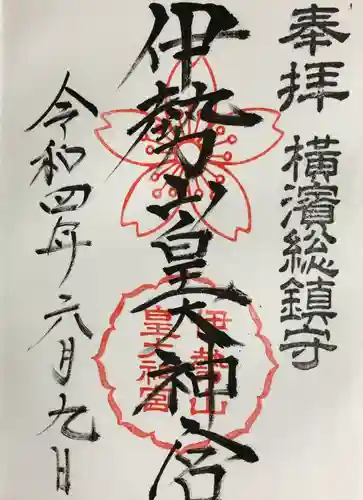 奉拝
横濱総鎮守
伊勢山皇大神宮
伊勢山
皇大神宮
令和四年六月九日